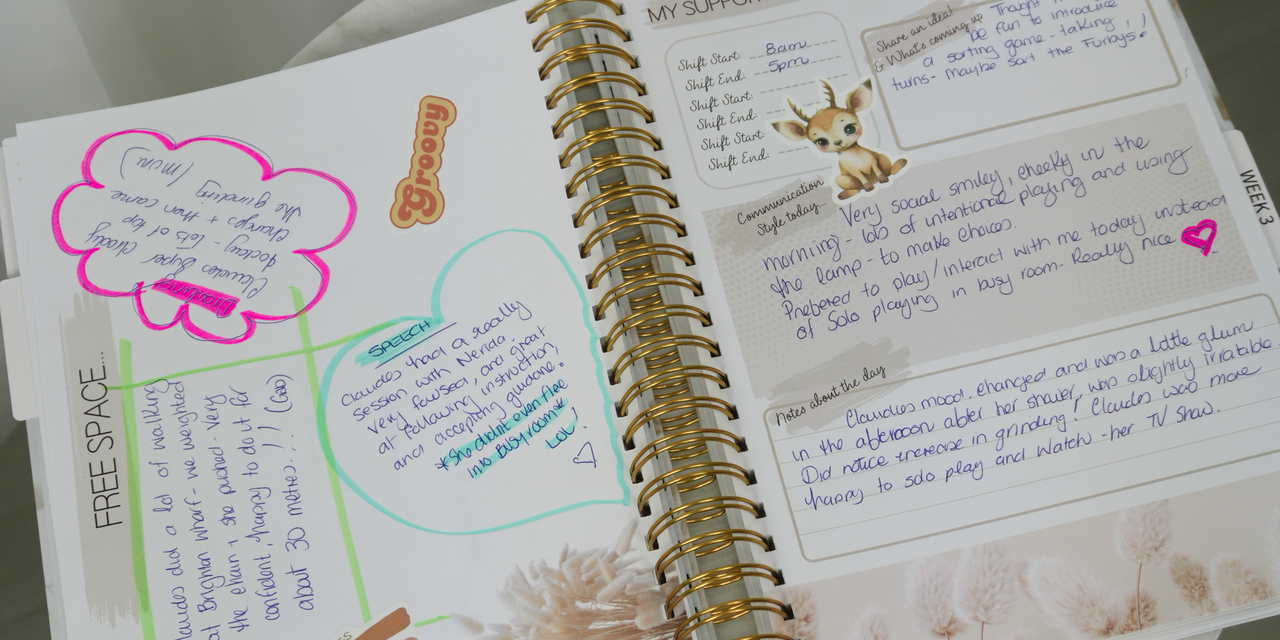 Groovy
Breathing
Claudes super chesty
today - lots of top
change + then came
the grinding (main)
FREE SPACE...
Claudes did a lot of walking
at Brighton wharf - we weighted
the chair & she pushed - very
confident, happy to do it for
about 30 metres...!! (Goo)
SPEECH
Claudes had a really
session with Nerida -
very focused, and great
at following instruction,
and accepting guidance!
*She didn't even flee
into busy room
LOL!
MY SUPPO
Shift Start: 8am
Shift End: 5pm
Shift Start:
Shift End:
Shift Start:
Shift End:
Share an idea!
& What's coming up
Thought
be fun to introduce
a sorting game - taking
turns - maybe sort the Furbys!
Communication
Style today...
Very social smiley, cheeky in the
morning - lots of intentional playing and using
the lamp - to make choices.
Prefered to play/interact with me today instead
of solo playing in busy room - Really nice
WEEK 3
Notes about the day
Claudes mood changed and was a little glum
in the afternoon after her shower, was slightly irratable.
Did notice increase in grinding! Claudes was more
happy to solo play and watch - her TV show.